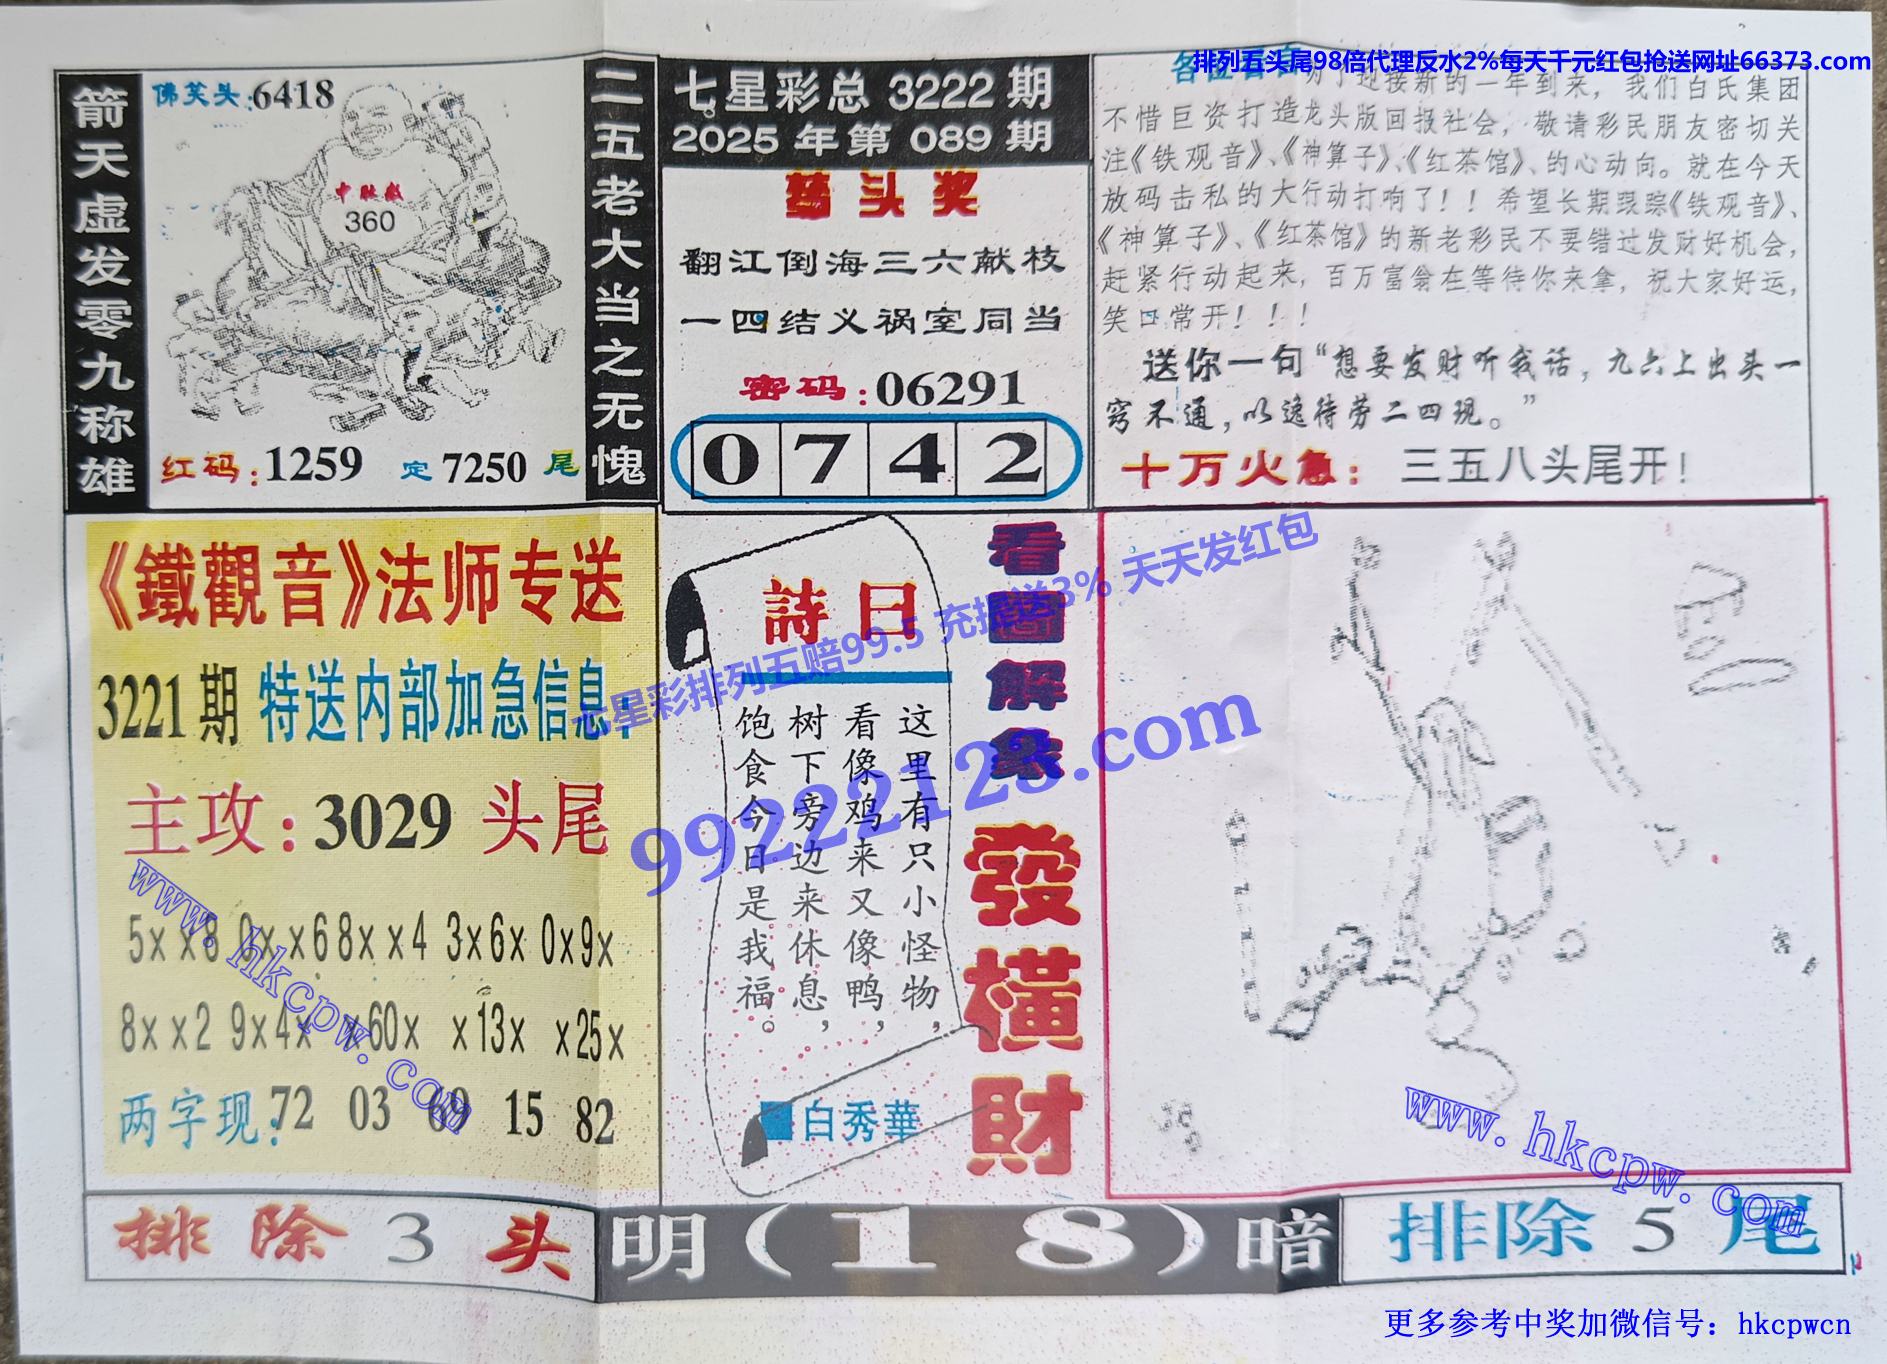 排列五头尾98倍代理反水2%每天千元红包抢送网址66373.com
箭天虚发零九称雄
佛笑头:6418
360
红码:1259 定7250尾
二五老大当之无愧
七星彩总 3222 期
2025 年第 089 期
梦头奖
翻江倒海三六献枝
一四结义祸室同当
密码:06291
0742
为了迎接新的一年到来，我们白氏集团
不惜巨资打造龙头版回报社会，敬请彩民朋友密切关
注《铁观音》、《神算子》、《红茶馆》、的心动向。就在今天
放码击私的大行动打响了！！希望长期跟踪《铁观音》、
《神算子》、《红茶馆》的新老彩民不要错过发财好机会，
赶紧行动起来，百万富翁在等待你来拿，祝大家好运，
笑口常开！！！
送你一句“想要发财听我话，九六上出头一
窍不通，以逸待劳二四现。”
十万火急：三五八头尾开！
《鐵觀音》法师专送
3221期 特送内部加急信息:
主攻:3029头尾
5xx8 0xx6 8xx4 3x6x 0x9x
8xx2 9x4x x60x x13x x25x
两字现: 72 03 69 15 82
詩曰
这里有只小怪物，
看像鸡来又像鸭，
树下旁边来休息，
饱食今日是我福。
白秀華
看圖解象
發橫財
七星彩排列五赔99.5 充提送3% 天天发红包
99222123.com
www.hkcpw.com
www.hkcpw.com
排除3头
明(18)暗
排除5尾
更多参考中奖加微信号：hkcpwcn